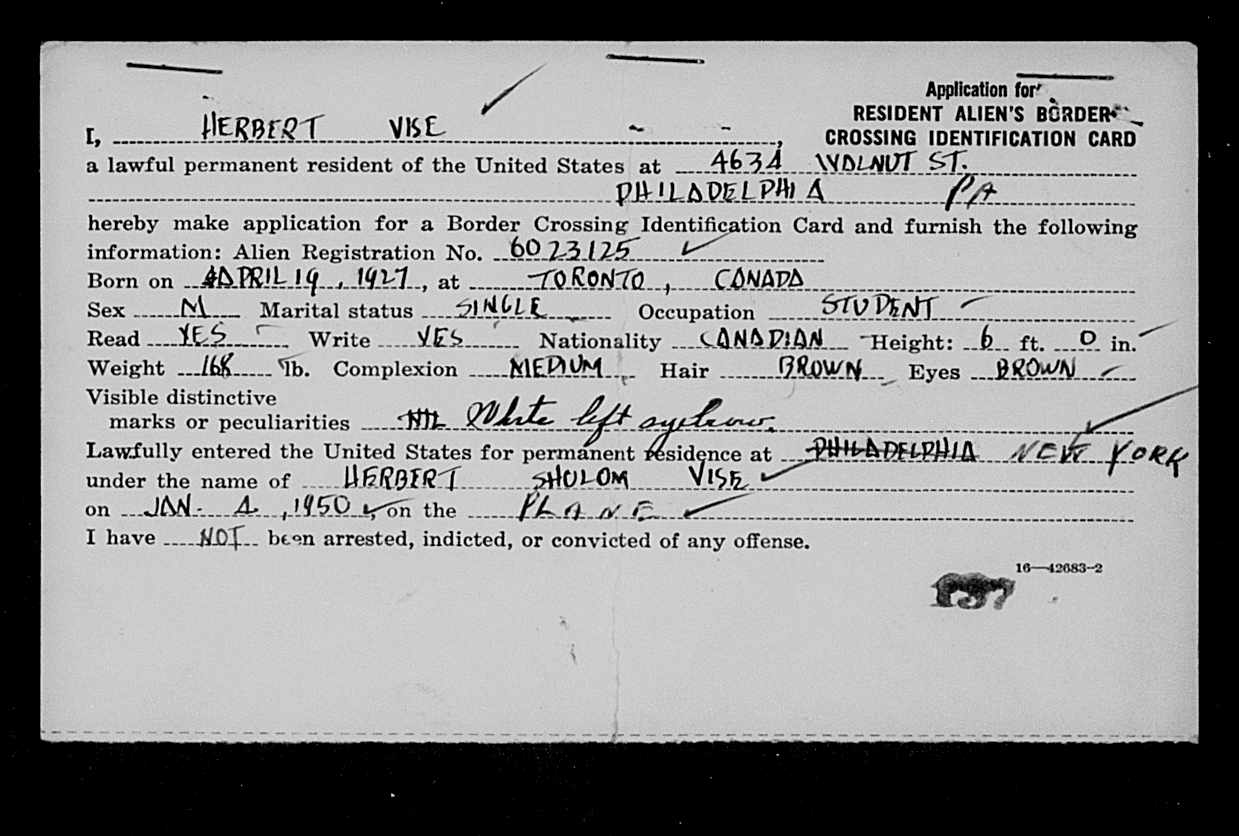 Application for
RESIDENT ALIEN'S BORDER
CROSSING IDENTIFICATION CARD
I, HERBERT VISE,
a lawful permanent resident of the United States at 4634 WALNUT ST.
PHILADELPHIA PA
hereby make application for a Border Crossing Identification Card and furnish the following
information: Alien Registration No. 6023125
Born on APRIL 19, 1927, at TORONTO, CANADA
Sex M Marital status SINGLE Occupation STUDENT
Read YES Write YES Nationality CANADIAN Height: 6 ft. 0 in.
Weight 168 lb. Complexion MEDIUM Hair BROWN Eyes BROWN
Visible distinctive
marks or peculiarities NIL White left eyebrow.
Lawfully entered the United States for permanent residence at PHILADELPHIA NEW YORK
under the name of HERBERT SHOLOM VISE
on JAN. 4, 1950, on the PLANE
I have NOT been arrested, indicted, or convicted of any offense.
16—42683-2